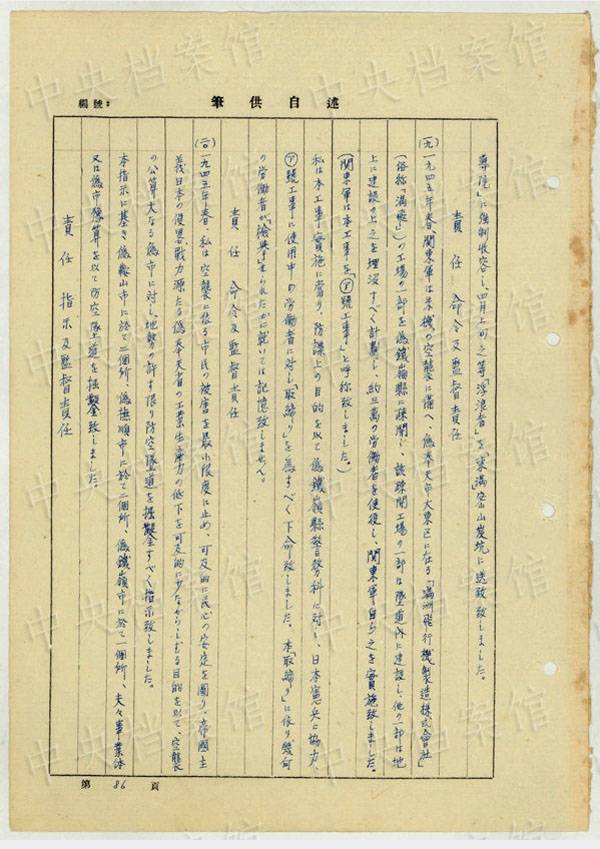 筆供自述
編號：
導院」に強制收容し、四月上旬之等「浮浪者」を、東滿密山炭坑に送致致しました。
責任 命令及監督責任
(一九)一九四五年春、關東軍は米機の空襲に備へ、偽奉天市大東区に在る「滿洲飛行機製造株式會社」
(俗稱「滿飛」)の工場の一部を偽鐵嶺縣に疎開し、該疎開工場の一部は隧道內に建設し、他の一部は地
上に建設の上之を埋沒すべく計劃し、約三萬の労働者を使役し、關東軍自ら之を實施致しました。
(関東軍は本工事を「㋐號工事」と呼称致しました。)
私は本工事實施に當り、防諜上の目的を以て偽鐵嶺縣警務科に対し、日本憲兵に協力、
㋐號工事に使用中の労働者に対し「取締り」を為すべく下命致しました。本「取締り」に依り幾何
の労働者が「檢挙」せられたかに就いては記憶致しません。
責任 命令及監督責任
(二〇)一九四五年春、私は空襲に依る市民の被害を最小限度に止め、可及的に民心の安定を圖り、帝國主
義日本の侵略戰力源たる偽奉天省の工業生産力の低下を可及的に少なからしむる目的を以て、空襲
の公算大なる偽市に対し、地勢の許す限り防空隧道を掘鑿すべく指示致しました。
本指示に基き偽鞍山市に於て二個所、偽撫順市に於て二個所、偽鐵嶺市に於て一個所、夫々事業体
又は偽市豫算を以て防空隧道を掘鑿致しました。
責任 指示及監督責任
第 86 頁
中央档案馆